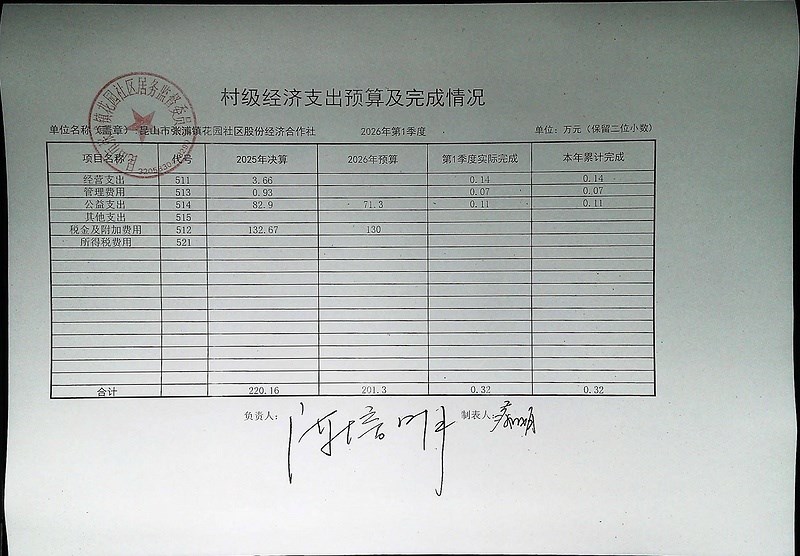 村级经济支出预算及完成情况
单位名称（盖章）：昆山市张浦镇花园社区股份经济合作社 2026年第1季度 单位：万元（保留二位小数）
项目名称 代号 2025年决算 2026年预算 第1季度实际完成 本年累计完成
经营支出 511 3.66 0.14 0.14
管理费用 513 0.93 0.07 0.07
公益支出 514 82.9 71.3 0.11 0.11
其他支出 515
税金及附加费用 512 132.67 130
所得税费用 521
合计 220.16 201.3 0.32 0.32
负责人： 制表人：